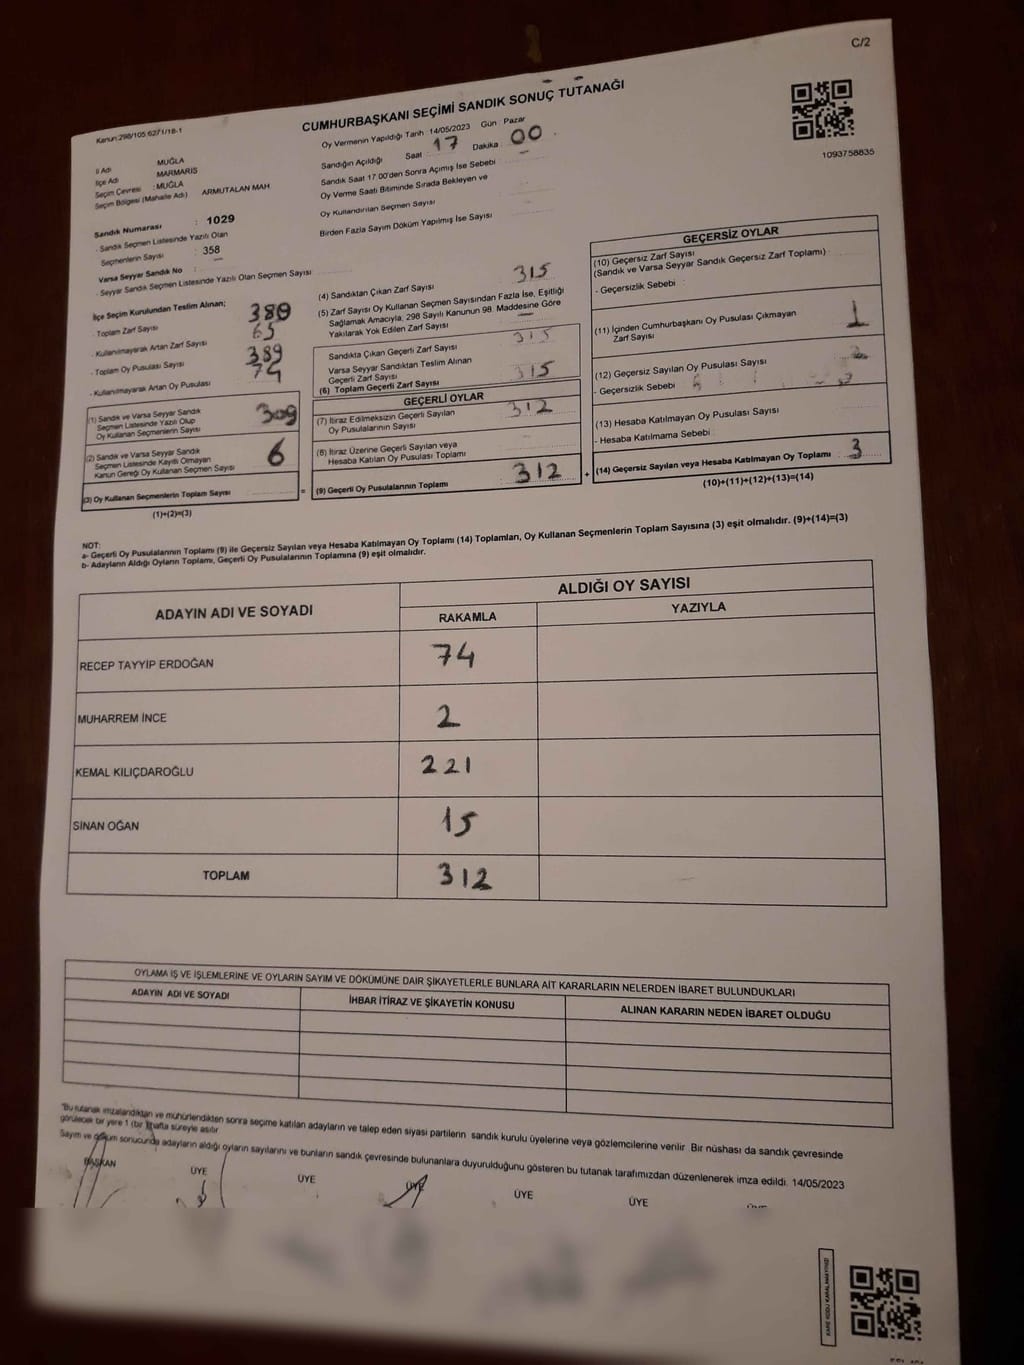 C/2
Kanun:298/105 6271/18-1
CUMHURBAŞKANI SEÇİMİ SANDIK SONUÇ TUTANAĞI
1093758835
İl Adı MUĞLA
İlçe Adı MARMARİS
Seçim Çevresi : MUĞLA
Seçim Bölgesi (Mahalle Adı) ARMUTALAN MAH
Oy Vermenin Yapıldığı Tarih : 14/05/2023 Gün : Pazar
Sandığın Açıldığı Saat 17 Dakika 00
Sandık Saat 17:00'den Sonra Açımış İse Sebebi
Oy Verme Saati Bitiminde Sırada Bekleyen ve
Oy Kullandırılan Seçmen Sayısı
Birden Fazla Sayım Döküm Yapılmış İse Sayısı
Sandık Numarası : 1029
- Sandık Seçmen Listesinde Yazılı Olan
Seçmenlerin Sayısı : 358
Varsa Seyyar Sandık No :
- Seyyar Sandık Seçmen Listesinde Yazılı Olan Seçmen Sayısı
İlçe Seçim Kurulundan Teslim Alınan;
- Toplam Zarf Sayısı 380
- Kullanılmayarak Artan Zarf Sayısı 65
- Toplam Oy Pusulası Sayısı 389
- Kullanılmayarak Artan Oy Pusulası 74
(1) Sandık ve Varsa Seyyar Sandık
Seçmen Listesinde Yazılı Olup
Oy Kullanan Seçmenlerin Sayısı 309
(2) Sandık ve Varsa Seyyar Sandık
Seçmen Listesinde Kayıtlı Olmayan
Kanun Gereği Oy Kullanan Seçmen Sayısı 6
(3) Oy Kullanan Seçmenlerin Toplam Sayısı
(1)+(2)=(3)
=
(4) Sandıktan Çıkan Zarf Sayısı 315
(5) Zarf Sayısı Oy Kullanan Seçmen Sayısından Fazla İse, Eşitliği
Sağlamak Amacıyla; 298 Sayılı Kanunun 98. Maddesine Göre
Yakılarak Yok Edilen Zarf Sayısı
Sandıkta Çıkan Geçerli Zarf Sayısı 315
Varsa Seyyar Sandıktan Teslim Alınan
Geçerli Zarf Sayısı
(6) Toplam Geçerli Zarf Sayısı 315
GEÇERLİ OYLAR
(7) İtiraz Edilmeksizin Geçerli Sayılan
Oy Pusulalarının Sayısı 312
(8) İtiraz Üzerine Geçerli Sayılan veya
Hesaba Katılan Oy Pusulası Toplamı
(9) Geçerli Oy Pusulalarının Toplamı 312
+
GEÇERSİZ OYLAR
(10) Geçersiz Zarf Sayısı
(Sandık ve Varsa Seyyar Sandık Geçersiz Zarf Toplamı)
- Geçersizlik Sebebi :
(11) İçinden Cumhurbaşkanı Oy Pusulası Çıkmayan
Zarf Sayısı 1
(12) Geçersiz Sayılan Oy Pusulası Sayısı 2
- Geçersizlik Sebebi
(13) Hesaba Katılmayan Oy Pusulası Sayısı
- Hesaba Katılmama Sebebi
(14) Geçersiz Sayılan veya Hesaba Katılmayan Oy Toplamı 3
(10)+(11)+(12)+(13)=(14)
NOT:
a- Geçerli Oy Pusulalarının Toplamı (9) ile Geçersiz Sayılan veya Hesaba Katılmayan Oy Toplamı (14) Toplamları, Oy Kullanan Seçmenlerin Toplam Sayısına (3) eşit olmalıdır. (9)+(14)=(3)
b- Adayların Aldığı Oyların Toplamı, Geçerli Oy Pusulalarının Toplamına (9) eşit olmalıdır.
ADAYIN ADI VE SOYADI
ALDIĞI OY SAYISI
RAKAMLA YAZIYLA
RECEP TAYYİP ERDOĞAN 74
MUHARREM İNCE 2
KEMAL KILIÇDAROĞLU 221
SİNAN OĞAN 15
TOPLAM 312
OYLAMA İŞ VE İŞLEMLERİNE VE OYLARIN SAYIM VE DÖKÜMÜNE DAİR ŞİKAYETLERLE BUNLARA AİT KARARLARIN NELERDEN İBARET BULUNDUKLARI
ADAYIN ADI VE SOYADI İHBAR İTİRAZ VE ŞİKAYETİN KONUSU ALINAN KARARIN NEDEN İBARET OLDUĞU
*Bu tutanak imzalandıktan ve mühürlendikten sonra seçime katılan adayların ve talep eden siyasi partilerin sandık kurulu üyelerine veya gözlemcilerine verilir. Bir nüshası da sandık çevresinde
görülecek bir yere 1 (bir) hafta süreyle asılır
Sayım ve döküm sonucunda adayların aldığı oyların sayılarını ve bunların sandık çevresinde bulunanlara duyurulduğunu gösteren bu tutanak tarafımızdan düzenlenerek imza edildi. 14/05/2023
BAŞKAN ÜYE ÜYE ÜYE ÜYE ÜYE
KARE KODU KARALAMAYINIZ